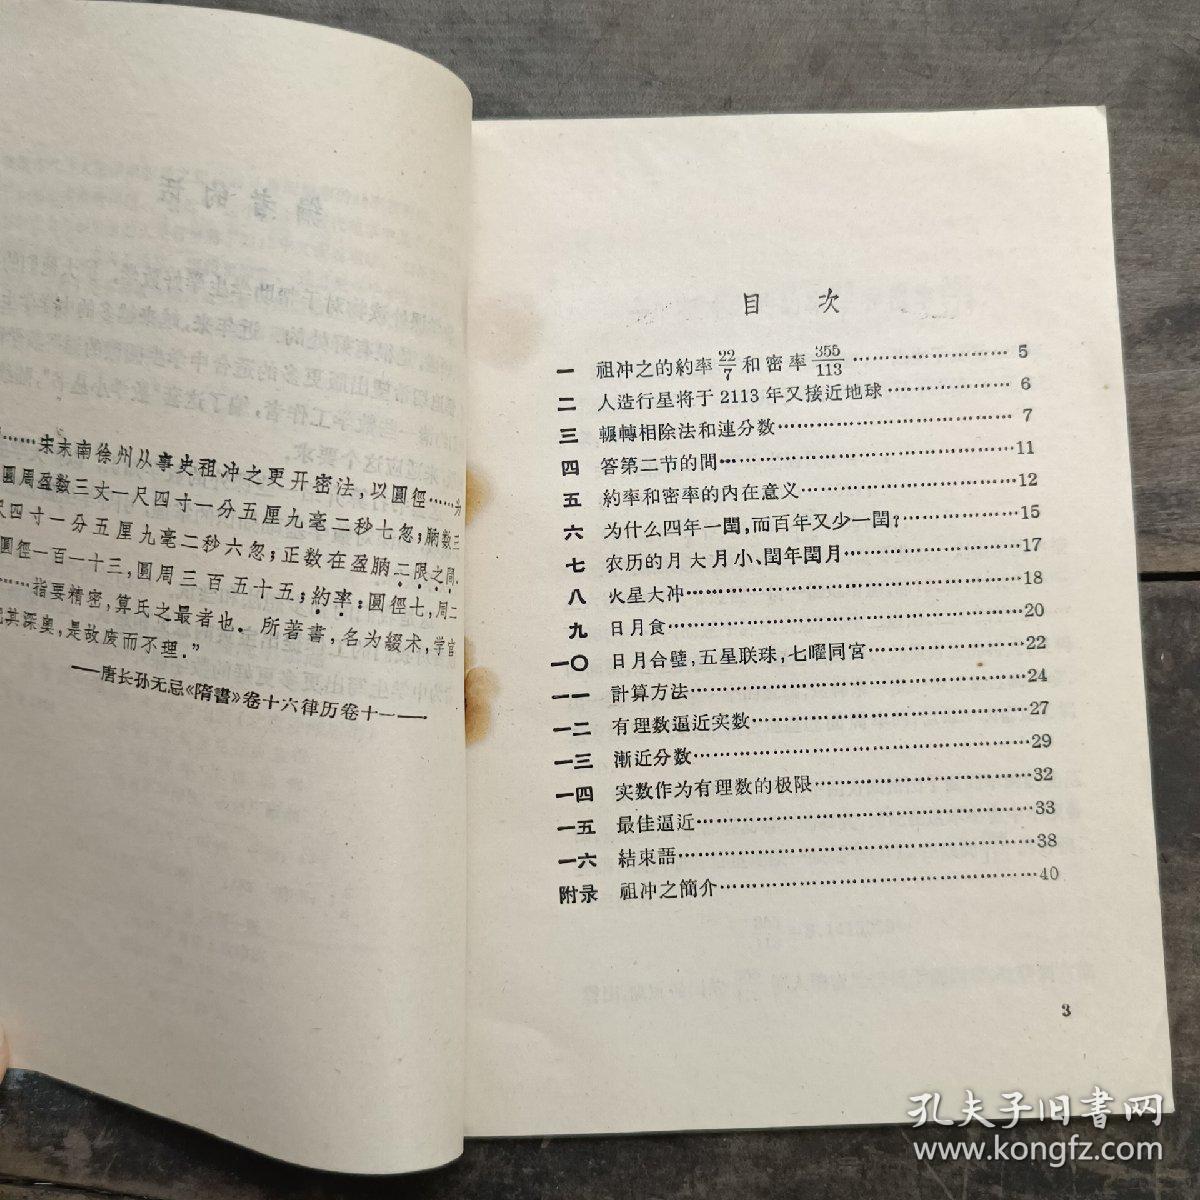 ……宋末南徐州从事史祖冲之更开密法，以圓徑……为
圓周盈数三丈一尺四寸一分五厘九毫二秒七忽；朒数三
尺四寸一分五厘九毫二秒六忽；正数在盈朒二限之間．
圓徑一百一十三，圓周三百五十五；約率：圓徑七，周二
……指要精密，算氏之最者也．所著書，名为綴术，学官
究其深奥，是故废而不理．”
——唐长孙无忌《隋書》卷十六律历卷十一——
目 次
一 祖冲之的約率22/7和密率355/113……………………5
二 人造行星将于2113年又接近地球………………6
三 輾轉相除法和連分数……………………………7
四 答第二节的問……………………………………11
五 約率和密率的内在意义…………………………12
六 为什么四年一閏，而百年又少一閏？……………15
七 农历的月大月小、閏年閏月………………………17
八 火星大冲…………………………………………18
九 日月食……………………………………………20
一〇 日月合璧，五星联珠，七曜同宮…………………22
一一 計算方法…………………………………………24
一二 有理数逼近实数…………………………………27
一三 漸近分数…………………………………………29
一四 实数作为有理数的极限…………………………32
一五 最佳逼近…………………………………………33
一六 結束語……………………………………………38
附录 祖冲之簡介………………………………………40
3
孔夫子旧書网
www.kongfz.com